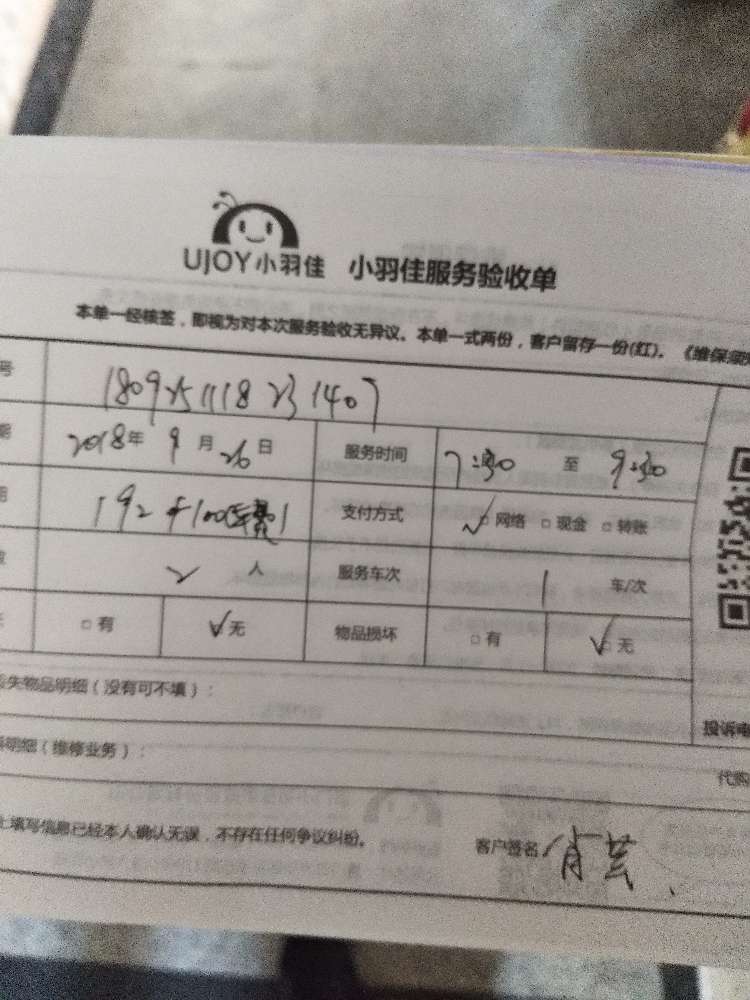 UJOY小羽佳 小羽佳服务验收单
本单一经核签，即视为对本次服务验收无异议。本单一式两份，客户留存一份(红)。《维保须
号 1809251118231407
期 2018年9月26日 服务时间 7:30 至 9:30
192+100(车费) 支付方式 ✓□网络 □现金 □转账
2人 服务车次 1 车/次
□有 ✓□无 物品损坏 □有 ✓□无
失物品明细（没有可不填）：
投诉电
明细（维修业务）：
代购
上填写信息已经本人确认无误，不存在任何争议纠纷。 客户签名